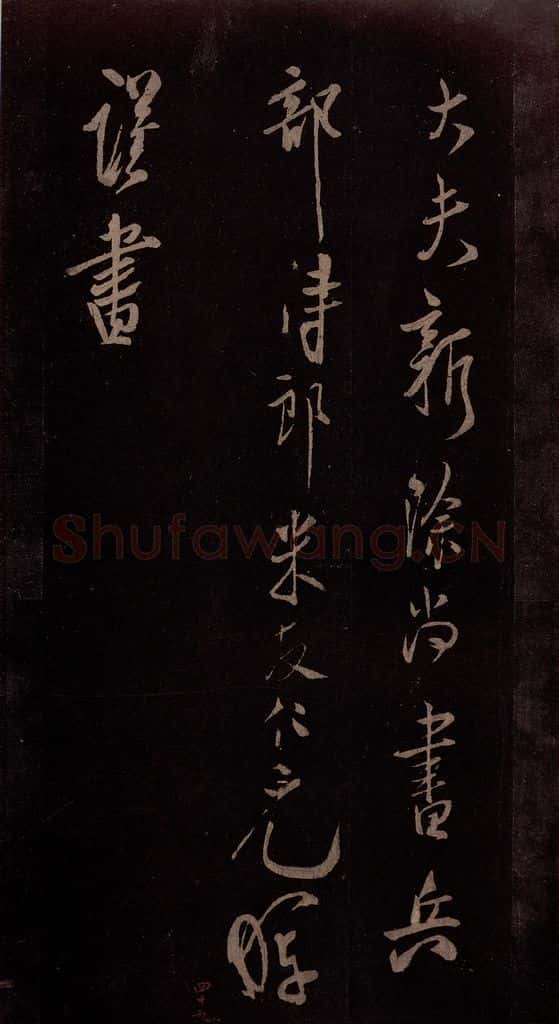 大夫新除尚書兵
部侍郎米友仁元暉
謹書
Shufawang.CN
四十九